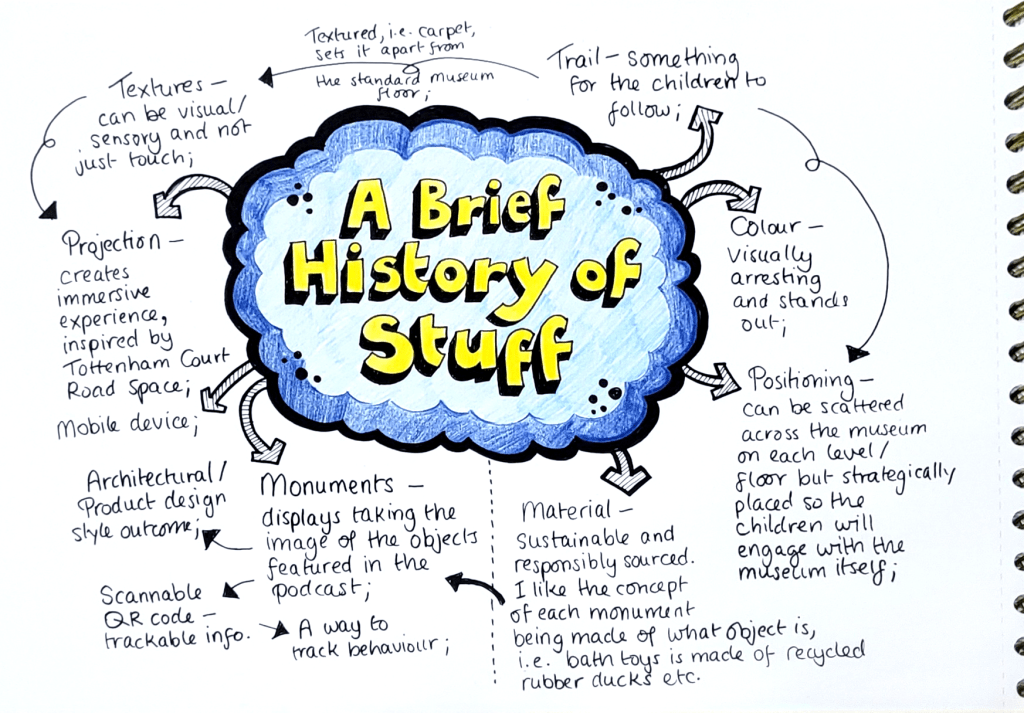 A Brief
History of
Stuff
Textured, i.e. carpet,
sets it apart from
the standard museum
floor;
Trail – something
for the children to
follow;
Textures –
can be visual/
sensory and not
just touch;
Projection –
creates
immersive
experience,
inspired by
Tottenham Court
Road Space;
Mobile device;
Colour –
visually
arresting
and stands
out;
Positioning –
can be scattered
across the museum
on each level/
floor but strategically
placed so the
children will
engage with the
museum itself;
Architectural/
Product design
style outcome;
Monuments –
displays taking the
image of the objects
featured in the
podcast;
Scannable
QR code –
trackable info.
A way to
track behaviour;
Material –
sustainable and
responsibly sourced.
I like the concept
of each monument
being made of what object is,
i.e. bath toys is made of recycled
rubber ducks etc.